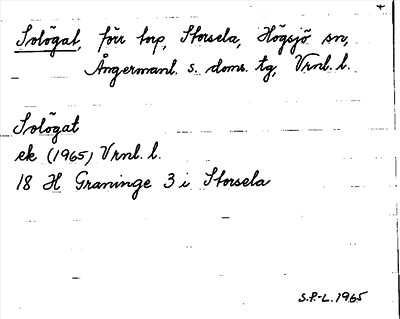 Sologat, förr torp, Storsela, Högsjö sn,
Ångermanl. s. doms. tg, Vrnl. l.
Sologat
ek (1965) Vrnl. l.
18 H Graninge 3 i Storsela
S.P.-L. 1965